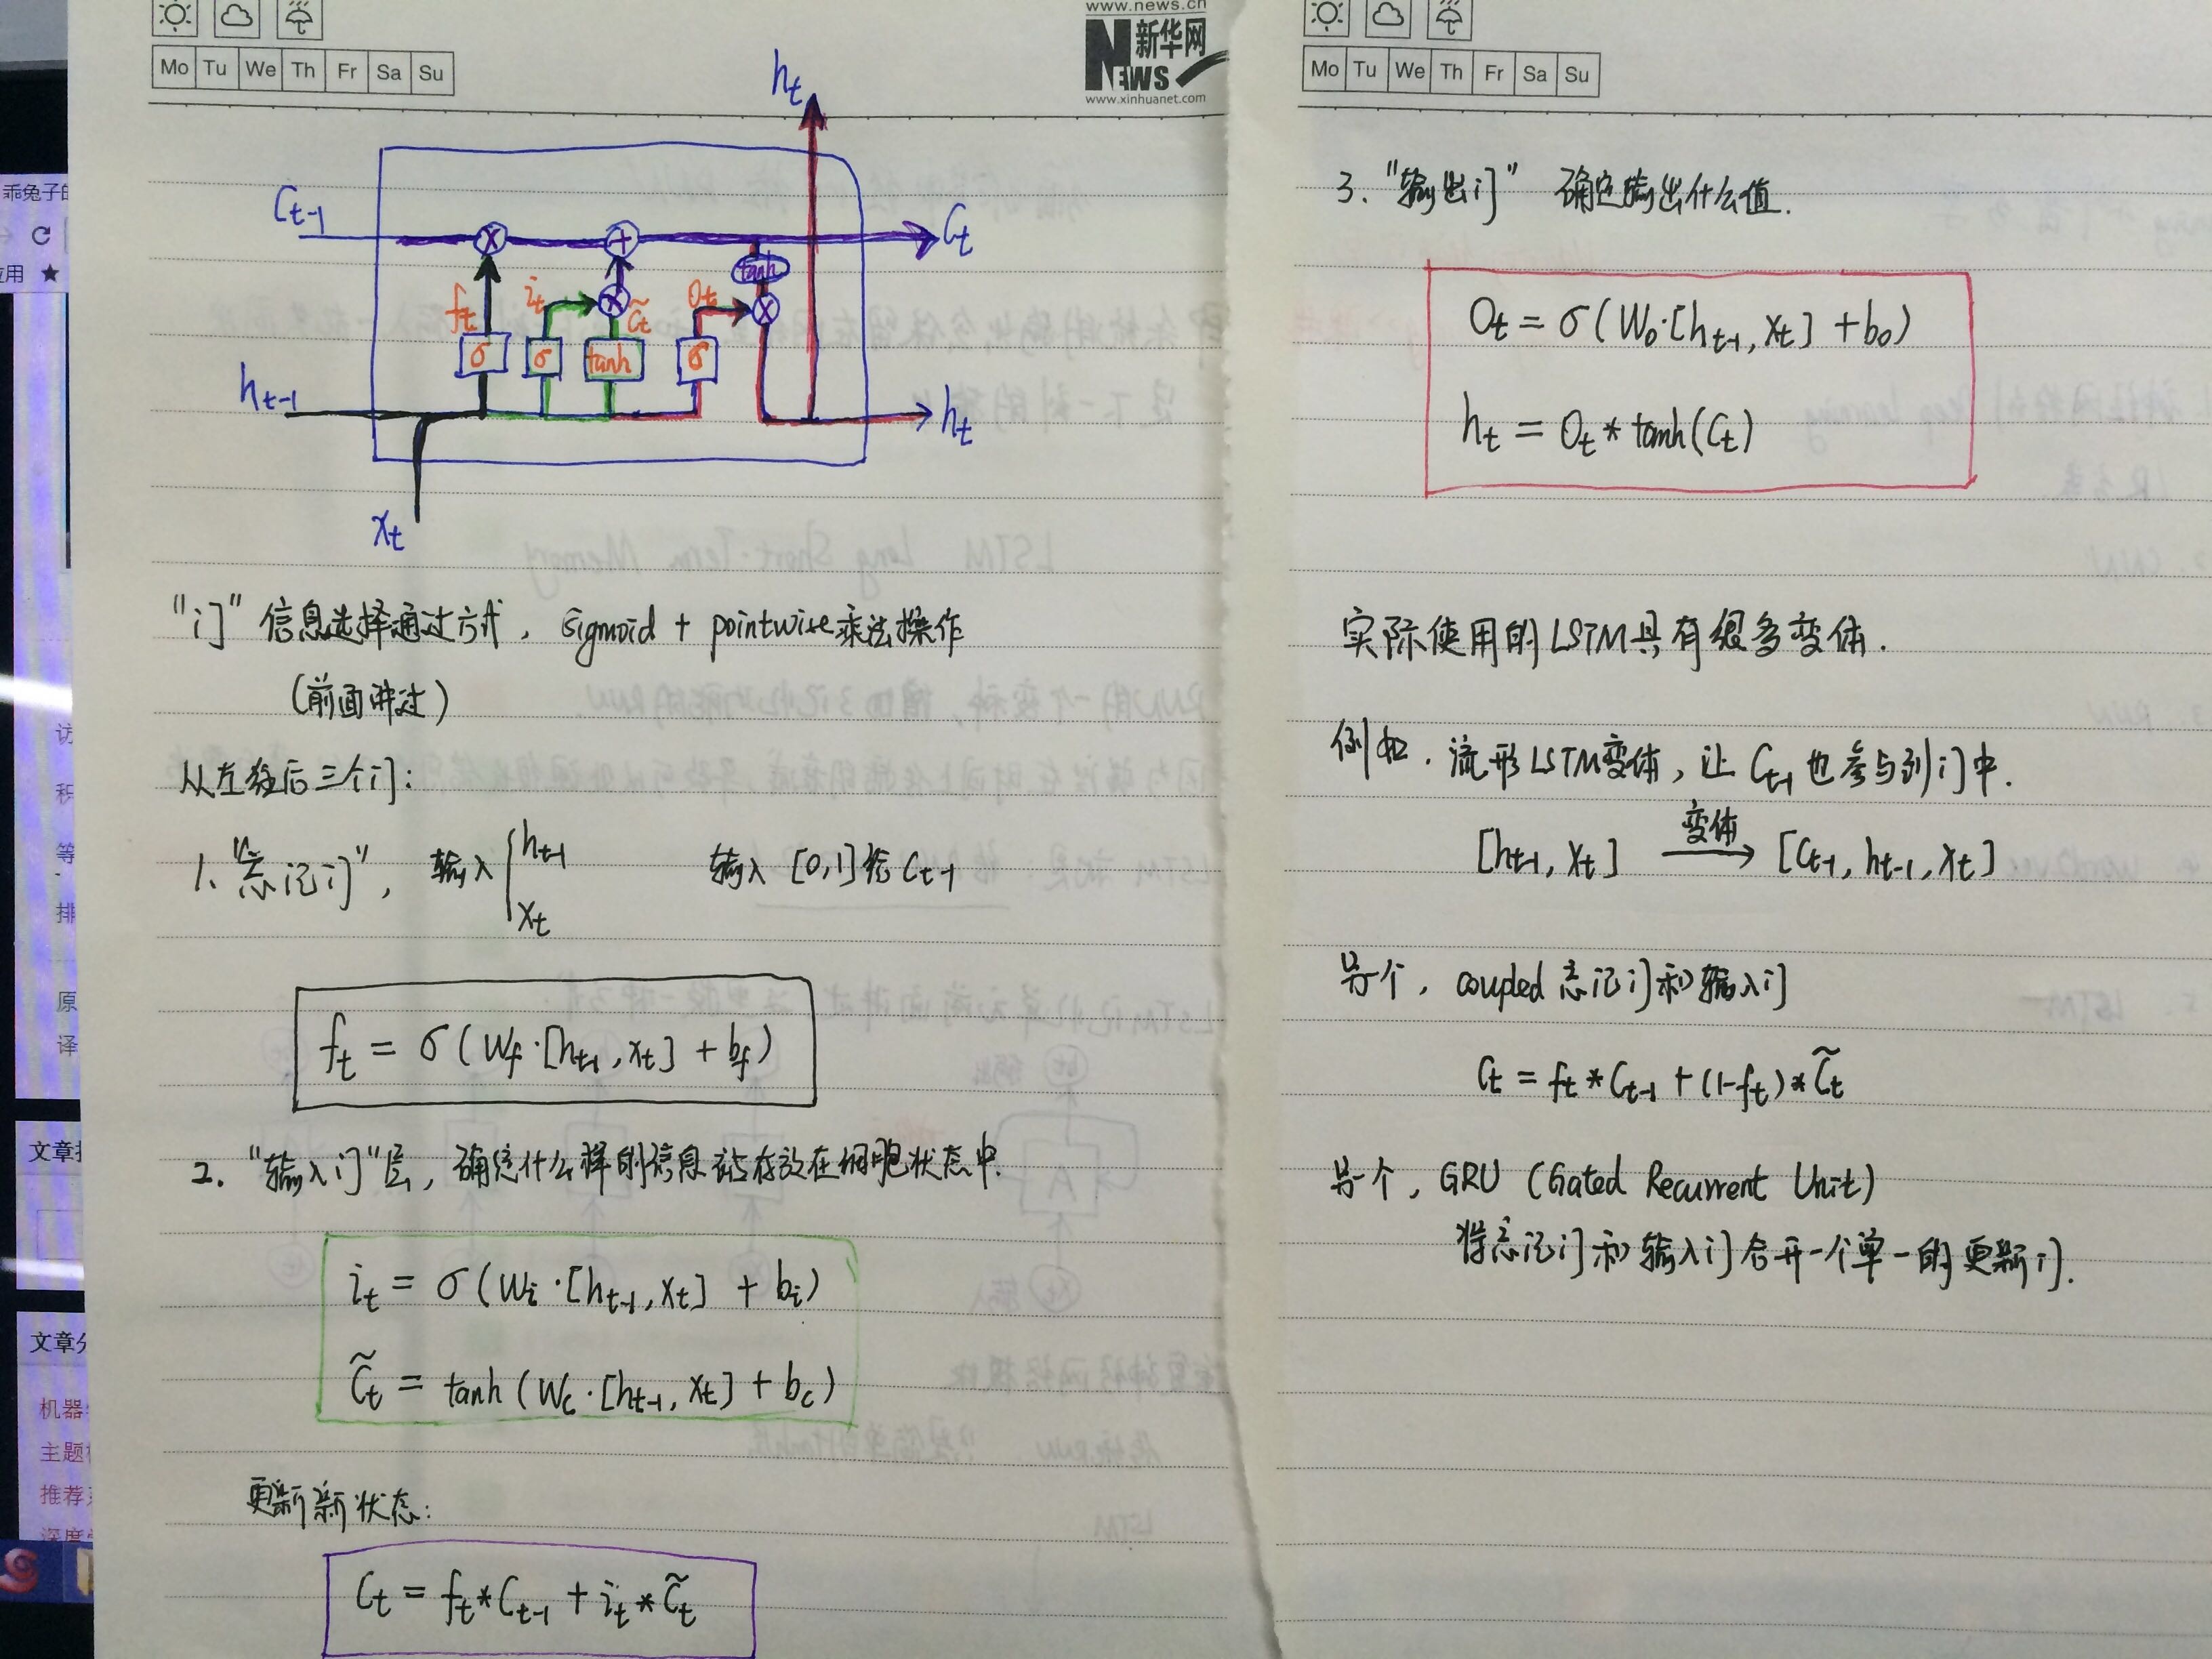 Mo Tu We Th Fr Sa Su
www.news.cn
新华网
NEWS
www.xinhuanet.com
h_t
C_{t-1}
C_t
tanh
f_t
i_t
C̃_t
O_t
σ σ tanh σ
h_{t-1}
h_t
x_t
"门" 信息选择通过方式, sigmoid + pointwise乘法操作
(前面讲过)
从左往后三个门:
1、"忘记门", 输入 h_{t-1} x_t 输入 [0,1]给 C_{t-1}
f_t = σ(W_f·[h_{t-1}, x_t] + b_f)
2. "输入门"层, 确定什么样的信息 存放在细胞状态中.
i_t = σ(W_i·[h_{t-1}, x_t] + b_i)
C̃_t = tanh(W_c·[h_{t-1}, x_t] + b_c)
更新新状态:
C_t = f_t * C_{t-1} + i_t * C̃_t
Mo Tu We Th Fr Sa Su
3. "输出门" 确定输出什么值.
O_t = σ(W_o·[h_{t-1}, x_t] + b_o)
h_t = O_t * tanh(C_t)
实际使用的LSTM具有很多变体.
例如. 流形LSTM变体, 让 C_{t-1} 也参与到门中.
[h_{t-1}, x_t] 变体→ [C_{t-1}, h_{t-1}, x_t]
另个, coupled 忘记门和输入门
C_t = f_t * C_{t-1} + (1-f_t) * C̃_t
另个, GRU (Gated Recurrent Unit)
将忘记门和输入门合开一个单一的更新门.
乖兔子的
应用
访
积
等
排
原
译
文章
文章分
机器
主题
推荐
深度